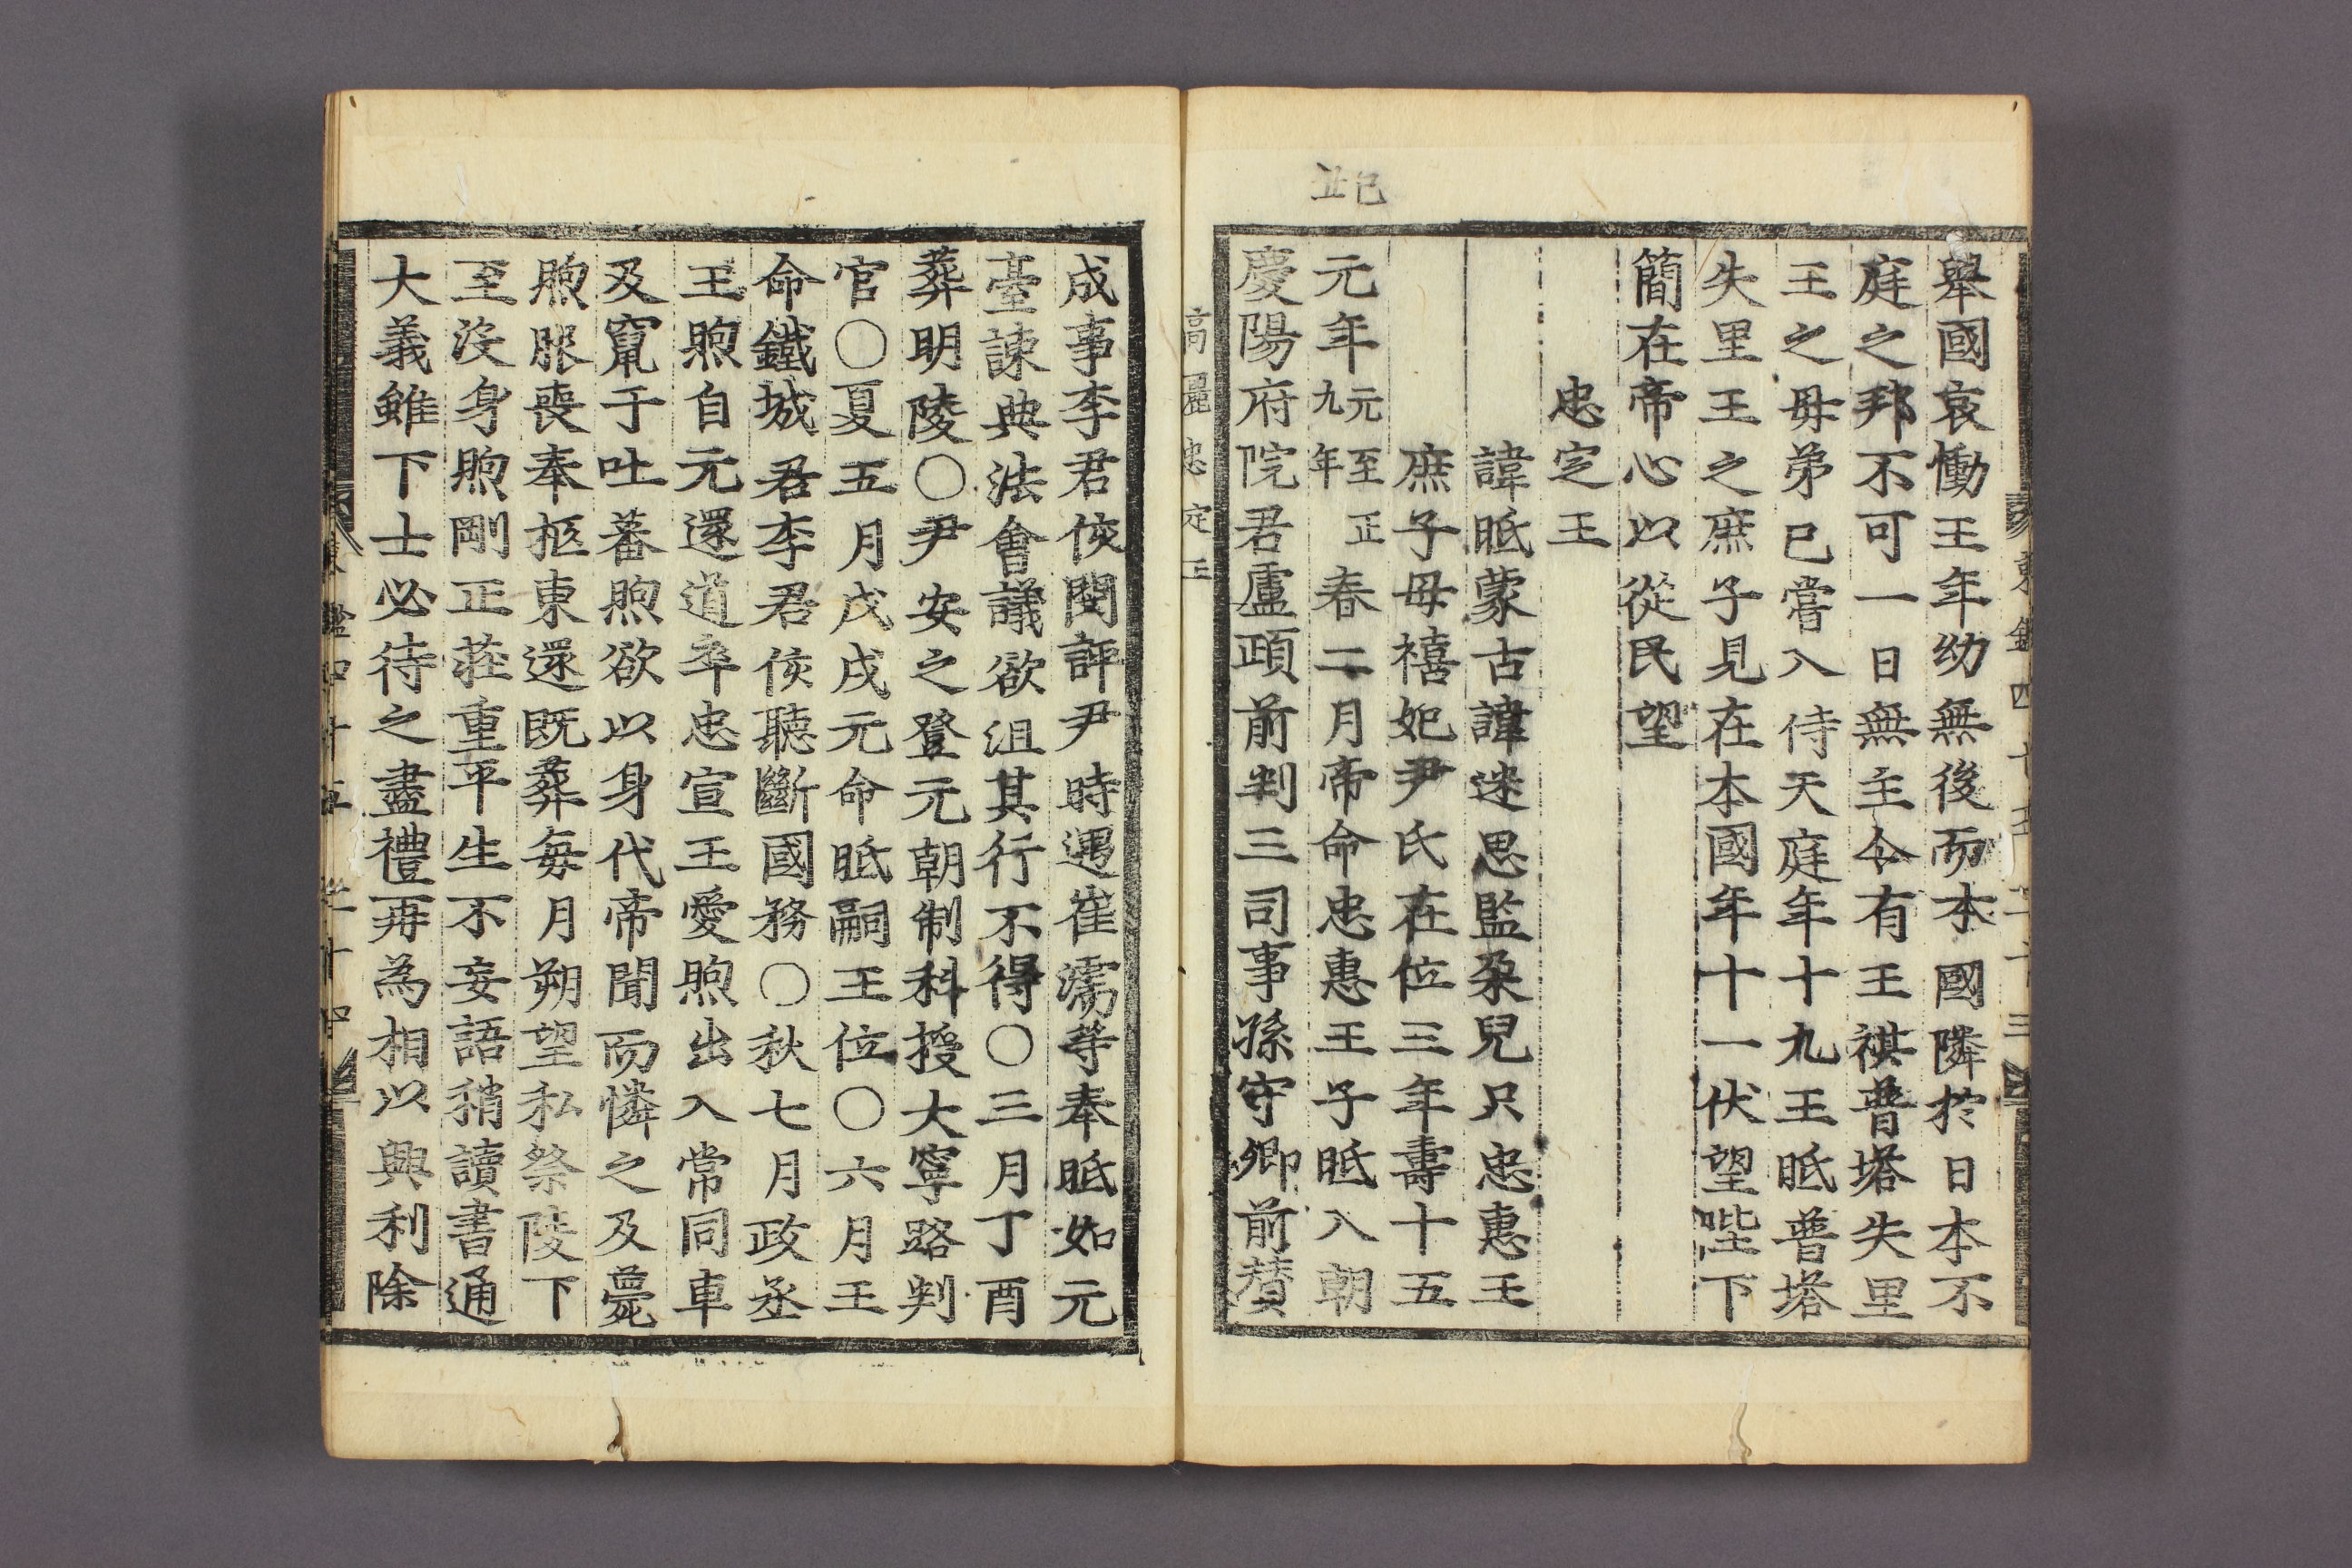 舉國哀慟王年幼無後而本國隣於日本不
庭之邦不可一日無主今有王祺普塔失里
王之母弟已嘗入侍天庭年十九王㫝普塔
失里王之庶子見在本國年十一伏望陛下
簡在帝心以從民望
忠定王
諱㫝蒙古諱迷思監朶兒只忠惠王
庶子母禧妃尹氏在位三年壽十五
己丑
元年元至正九年春二月帝命忠惠王子㫝入朝
慶陽府院君盧頙前判三司事孫守卿前賛
高麗忠定王
成事李君侅閔評尹時遇崔濡等奉㫝如元
臺諫典法會議欲沮其行不得○三月丁酉
葬明陵○尹安之登元朝制科授大寧路判
官○夏五月戊戌元命㫝嗣王位○六月王
命鐵城君李君侅聽斷國務○秋七月政丞
王煦自元還道卒忠宣王愛煦出入常同車
及竄于吐蕃煦欲以身代帝聞而憐之及薨
煦服喪奉柩東還既葬每月朔望私祭陵下
至沒身煦剛正莊重平生不妄語稍讀書通
大義雖下士必待之盡禮再為相以興利除